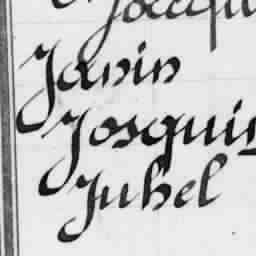 Janin
Josquin
Juhel